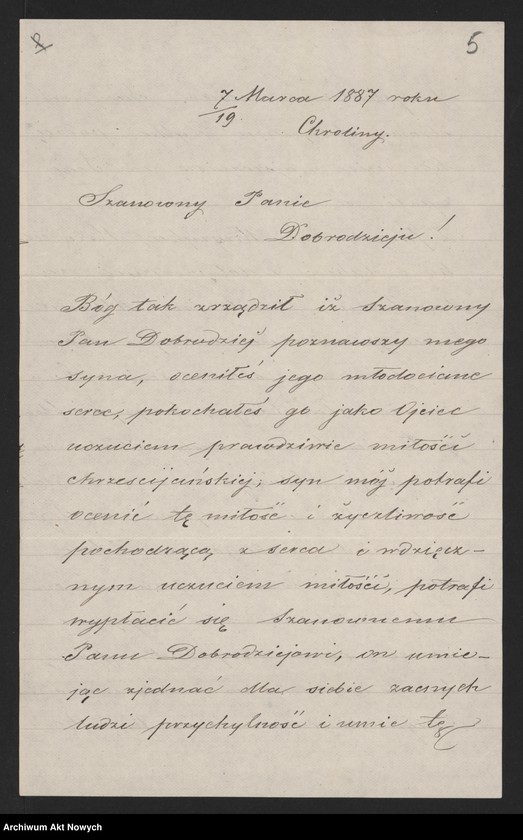 5
7/19 Marca 1887 roku
Chroliny.
Szanowny Panie
Dobrodzieju!
Bóg tak zrządził iż Szanowny
Pan Dobrodziéj poznawszy mego
syna, oceniłeś jego młodociane
serce, pokochałeś go jako Ojciec
uczuciem prawdziwie miłości
chrześcijańskiéj; syn mój potrafi
ocenić tę miłość i życzliwość
pochodzącą z serca i wdzięcz-
nym uczuciem miłości, potrafi
wypłacić się Szanownemu
Panu Dobrodziejowi, on umie-
jąc zjednać dla siebie zacnych
ludzi przychylność i umie tę
Archiwum Akt Nowych